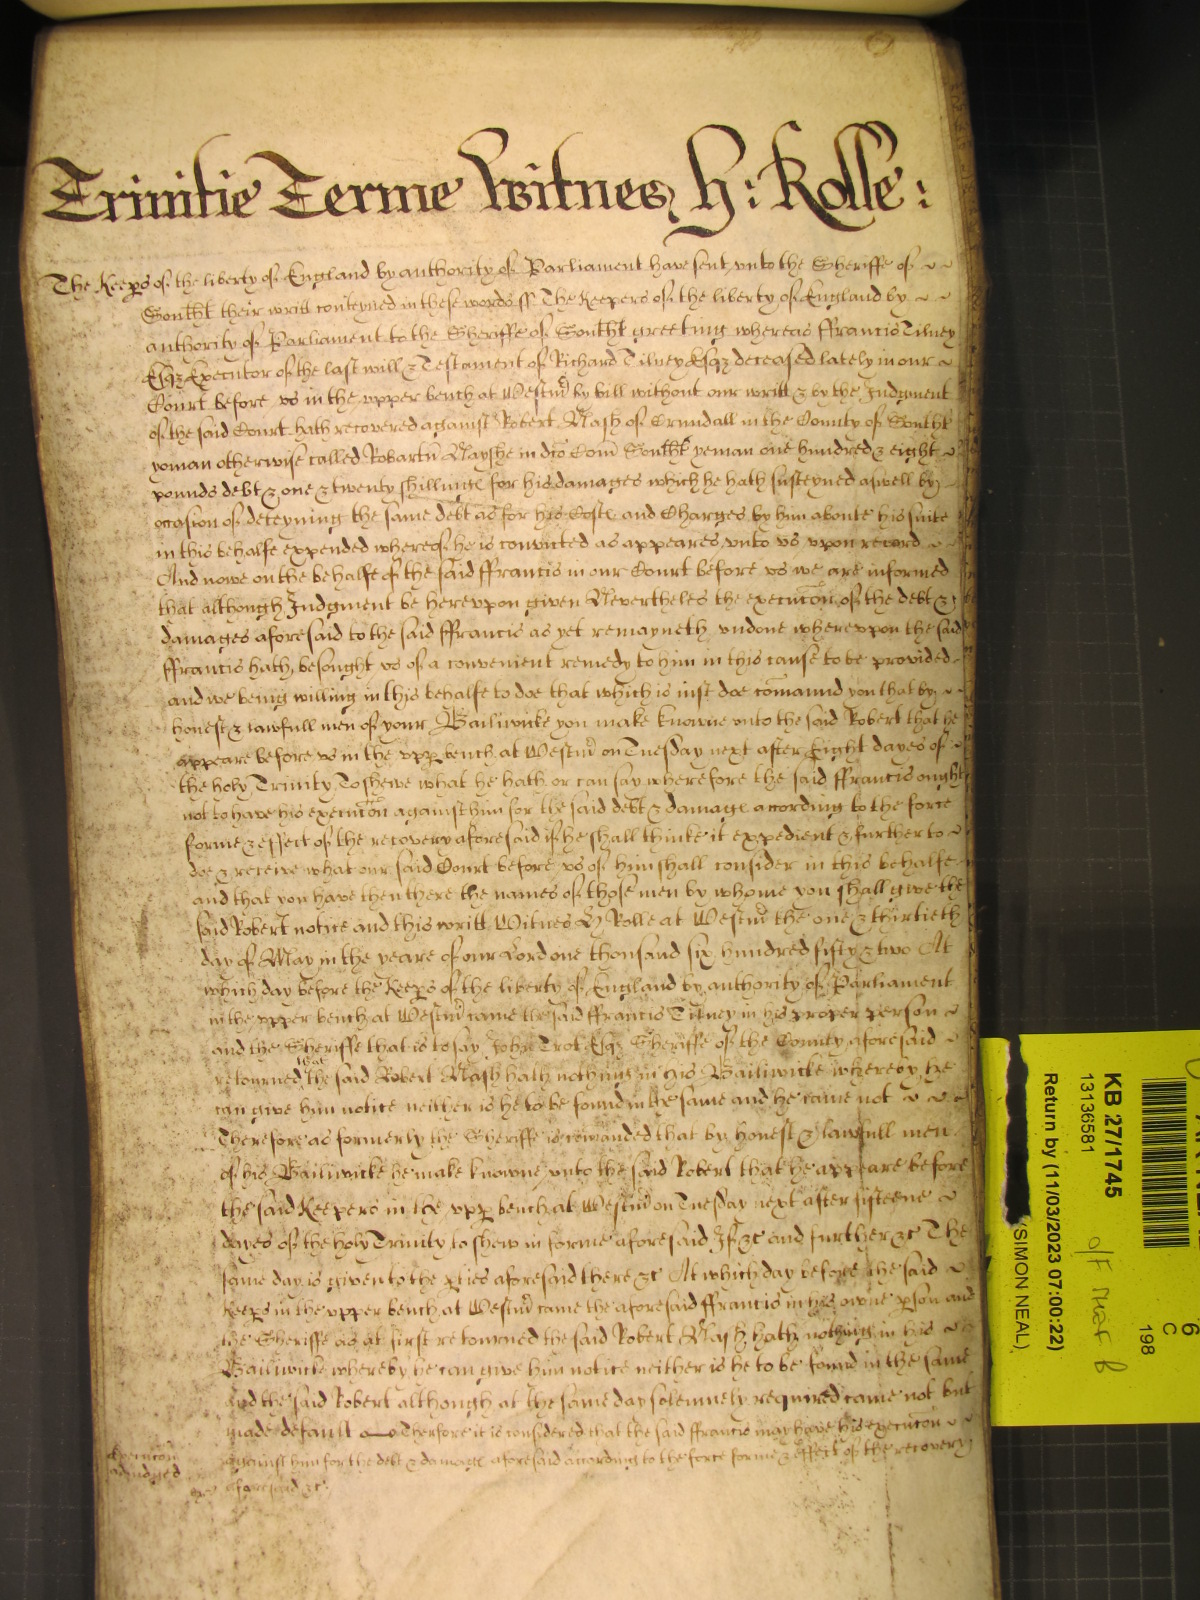 Trinitie Terme Witnes H: Rolle:
The Keeps of the liberty of England by authority of Parliament have sent unto the Sheriffe of
Southt their writt conteyned in these words ss The Keepers of the liberty of England by
authority of Parliament to the Sheriffe of Southt greeting whereas ffrancis Tilney
Esqz Executor of the last will & Testament of Richard Tilney Esqz deceased lately in our
Court before us in the upper bench at Westm by bill without our writt & by the Judgment
of the said Court hath recovered against Robert Nash of Crundall in the County of Southt
yoman otherwise called Robartu Nayshe in dco Com Southt yeman one hundred & eight
pounds debt & one & twenty shillings for his damages which he hath susteyned aswell by
occasion of deteyning the same debt as for his Costs and Charges by him aboute his suite
in this behalfe expended whereof he is convicted as appeares unto us upon record
And nowe on the behalfe of the said ffrancis in our Court before us we are informed
that although Judgment be hereupon given Nevertheles the execucon of the debt &
damages aforesaid to the said ffrancis as yet remayneth undone whereupon the said
ffrancis hath besought us of a convenient remedy to him in this cause to be provided
and we being willing in this behalfe to doe that which is iust doe comaund you that by
honest & lawfull men of your Bailiwicke you make knowne unto the said Robert that he
appeare before us in the upp bench at Westm on Tuesday next after Eight dayes of
the holy Trinity To shewe what he hath or can say wherefore the said ffrancis ought
not to have his execucon against him for the said debt & damages according to the force
forme & effect of the recovery aforesaid if he shall thinke it expedient & further to
doe & receive what our said Court before us of him shall consider in this behalfe
and that you have then there the names of those men by whome you shall give the
said Robert notice and this writt Witnes H Rolle at Westm the one & thirtieth
day of May in the yeare of our Lord one thousand six hundred fifty & two At
which day before the Keeps of the liberty of England by authority of Parliament
in the upper bench at Westm came the said ffrancis Tilney in his proper person
and the Sheriffe that is to say John Trot Esqz Sheriffe of the County aforesaid
retourned that the said Robert Nash hath nothing in his Bailiwicke whereby he
can give him notice neither is he to be found in the same and he came not
Therefore as formerly the Sheriffe is comanded that by honest & lawfull men
of his Bailiwicke he make knowne unto the said Robert that he appeare before
the said Keepers in the upp bench at Westm on Tuesday next after fifteene
dayes of the holy Trinity to shew in forme aforesaid If &c and further &c The
same day is given to the pties aforesaid there &c At which day before the said
Keeps in the upper bench at Westm came the aforesaid ffrancis in his owne pson and
the Sheriffe as at first retourned the said Robert Nash hath nothing in his
Bailiwicke whereby he can give him notice neither is he to be found in the same
And the said Robert although at the same day solemnely required came not but
made default Therfore it is considered that the said ffrancis may have his execucon
against him for the debt & damages aforesaid according to the force forme & effect of the recovery
aforesaid &c
Execucon
adiudged
KB 27/1745
13136581
Return by (11/03/2023 07:00:22)
(SIMON NEAL)
6
C
198